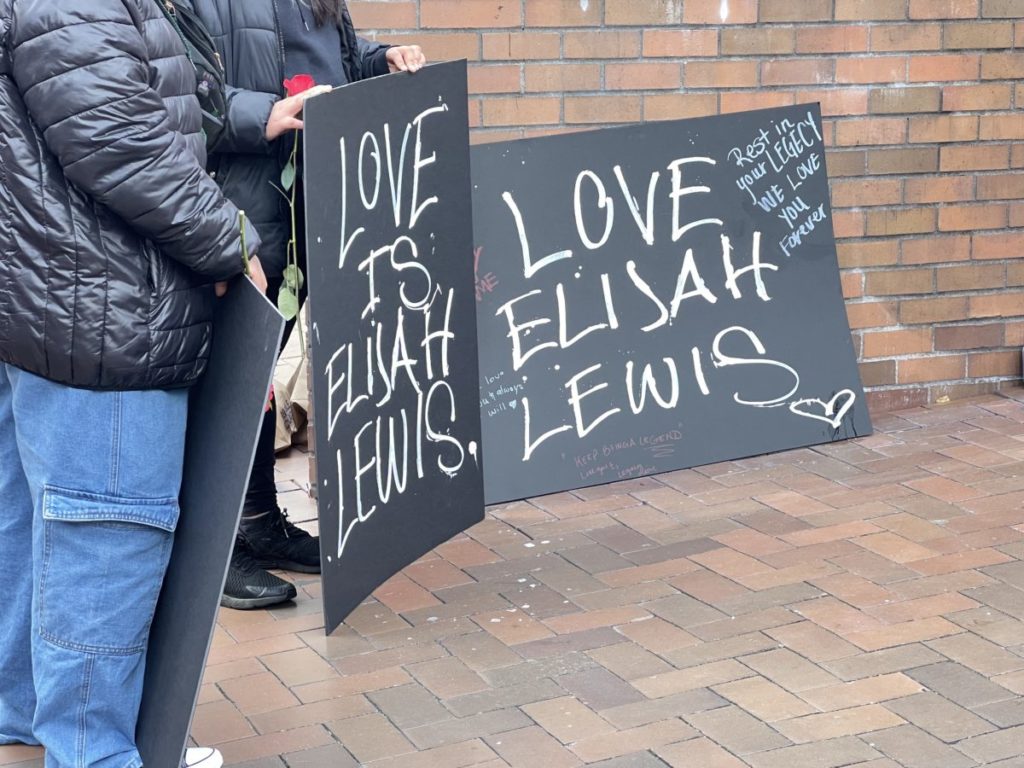 LOVE
IS
ELIJAH
LEWIS.
LOVE
ELIJAH
LEWIS
Rest in
your LEGECY
WE LOVE
YOU
Forever
ME
love
always
will
"KEEP BEING A LEGEND"